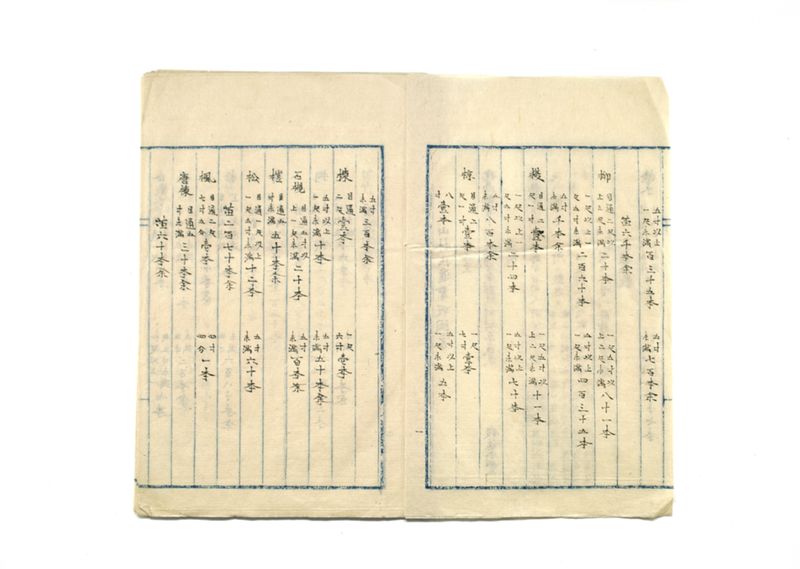 五寸以上一尺未満 百三十五本 五寸未満 七百本余
〆六千本余
柳 目通二尺以上 二十本 一尺五寸以上二尺未満 八十一本
一尺以上一尺五寸未満 二百六十本 五寸以上一尺未満 四百三十五本
五寸未満 千本余
目通二尺 壹本 一尺五寸以上二尺未満 十一本
一尺以上一尺五寸未満 二十四本 五寸以上一尺未満 七十本
五寸未満 八百本余
椋 目通二尺一寸 壹本 一尺七寸 壹本
八寸 壹本 五寸以上一尺未満 五本
五寸未満 三百本余
楝 目通二尺 壹本 一尺六寸 壱本
五寸以上一尺未満 十本 五寸未満 五十本余
目通五寸以上一尺未満 二十本 五寸未満 百本余
目通五寸未満 五十本余
松 目通一尺以上一尺五寸未満 十二本 五寸未満 六十本
〆二百七十本余
楓 目通七寸五分 壱本 四寸四分 一本
唐楝 目通五寸未満 三十本余
〆六十本余